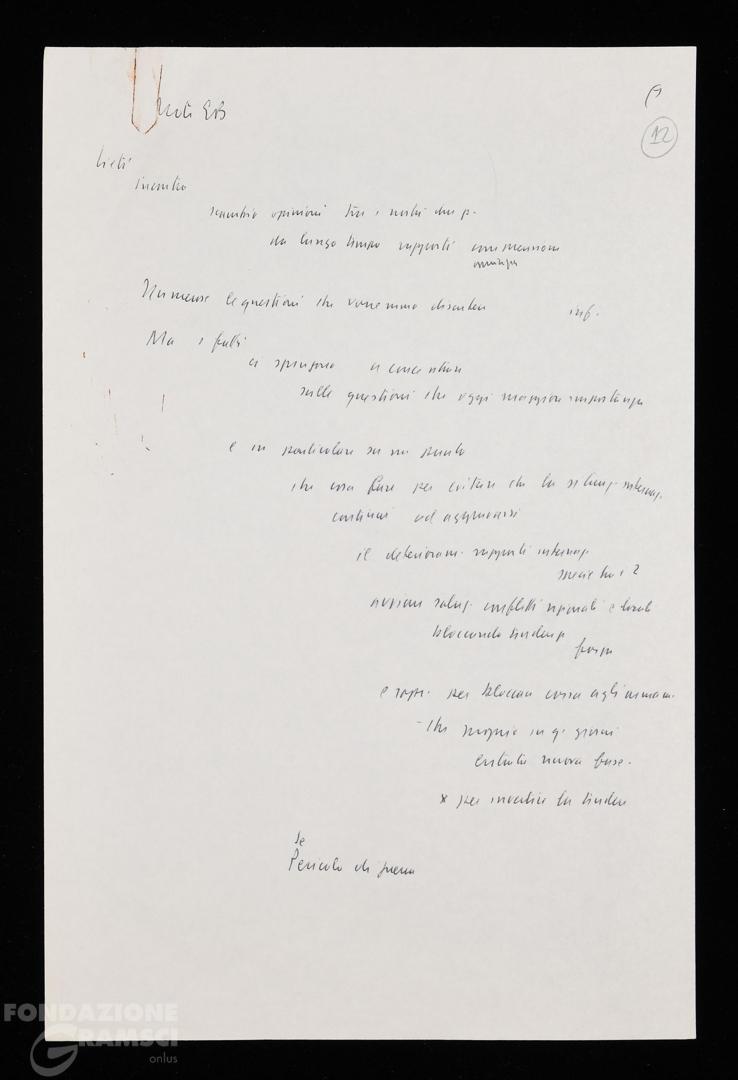 Note EB
12
Lieti
incontro
scambio opinioni tra i nostri due p.
da lungo tempo rapporti
Numerose le questioni che vorremmo discutere inf.
Ma i fatti
ci spingono a concentrare
sulle questioni che oggi maggiore importanza
e in particolare su un punto
che cosa fare per evitare che la internaz.
continui ad aggravarsi
il deterioram. rapporti internaz.
soluz. conflitti regionali e locali
bloccando tendenza
forza
e sopr. per bloccare corsa agli armam.
- che proprio in q. giorni
entrata nuova fase.
x per invertire la tendenza
Se
Pericolo di guerra
FONDAZIONE
GRAMSCI
onlus